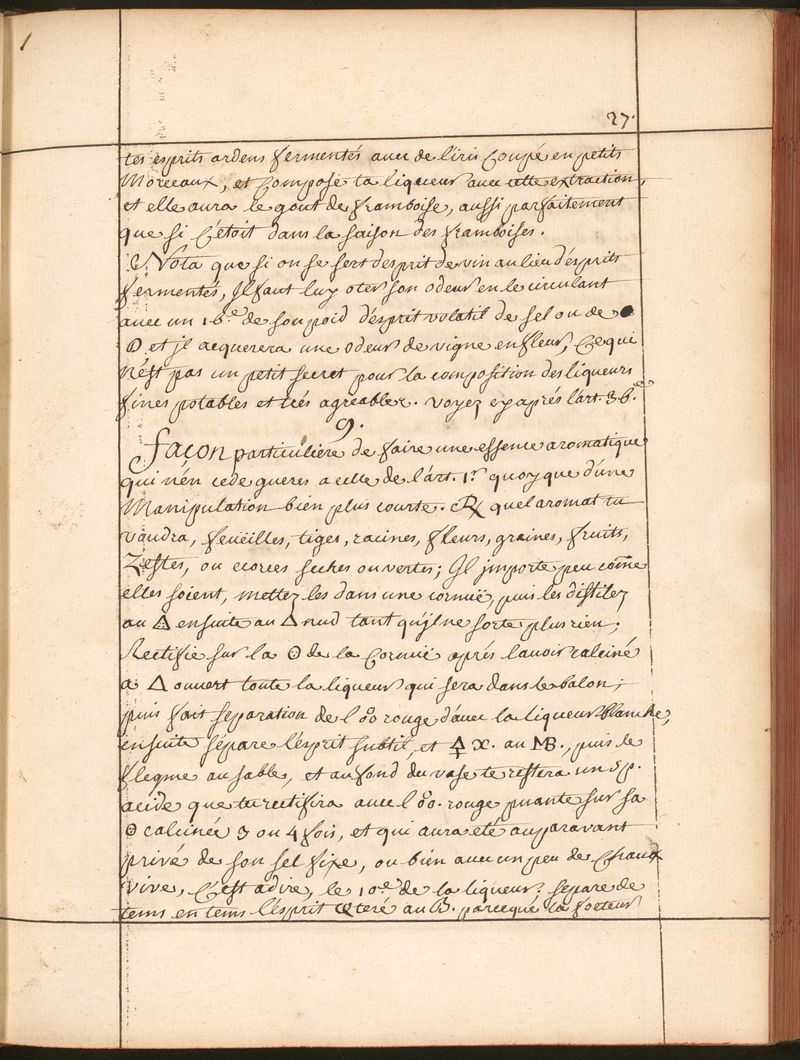 27.
tes esprits ardens fermentés avec de l'iris Coupé en petits
Morceaux, et Compose ta liqueur avec cette extraction,
et elle aura le gout de framboise, aussi parfaitement
que si C'étoit dans la saison des framboises.
Nota que si on se sert d'esprit de vin au lieu d'ésprits
fermentés, Il faut luy oter son odeur en le circulant
avec un 16.e de son poid d'ésprit volatil de sel ou de
et jl acquerera une odeur de vigne en fleur, Ce qui
n'ést pas un petit secret pour la composition des liqueurs
fines potables et trés agreables. voyez cy aprés l'art. 36.e
9.
Façon particulière de faire une essence aromatique
qui n'én cede gueres a celle de l'árt. 1.r quoy que d'úne
Manipulation bien plus courte. ℞ quel aromat tu
voudra, feüeilles, tiges, racines, fleurs, graines, fruits,
Zestes, ou ecorces seches ou vertes; Il jmporte peu come
elles soient, mettez les dans une cornuë, puis les distilez
au 🜂 ensuite au 🜂 nud tant qu'jl ne sorte plus rien;
Rectifie sur la ʘ de la Cornuë aprés l'avoir calciné
a 🜂 ouvert toute la liqueur qui sera dans le balon;
puis fait separation de l'oo rouge d'avec la liqueur blanche,
ensuite sépare l'ésprit subtil, et 🜍 x. au MB., puis le
flegme au sable, et au fond du vase te restera un sp.
acide que tu rectifira avec l'oo. rouge puante sur sa
ʘ calcinée 3 ou 4 fois, et qui aura eté auparavant
privé de son sel fixe, ou bien avec un peu de Chaux
vive, C'ést a dire, le 10.e de la liqueur. Separe de
tems en tems l'ésprit au B. parceque la foeteur